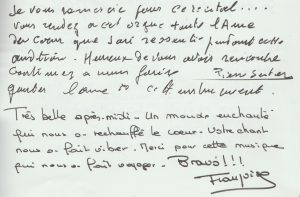 Je vous remercie pour ce récital...
Vous rendez a cet orgue toute l'Ame
du cœur que j'ai ressenti pendant cette
audition. Heureux de vous avoir rencontré
Continuez a nous faire
garder l'ame de cet instrument.
Très belle après-midi. Un monde enchanté
qui nous a réchauffé le cœur. Votre chant
nous a fait vibrer. Merci pour cette musique
qui nous a fait voyager. Bravo!!!
Françoise